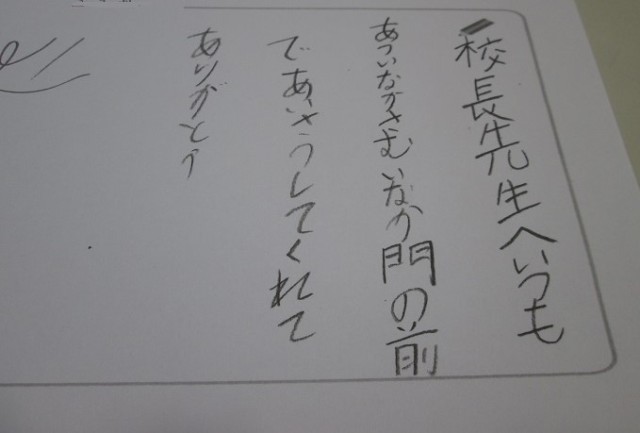 校長先生へいつも
あついなかさむいなか門の前
であいさつしてくれて
ありがとう